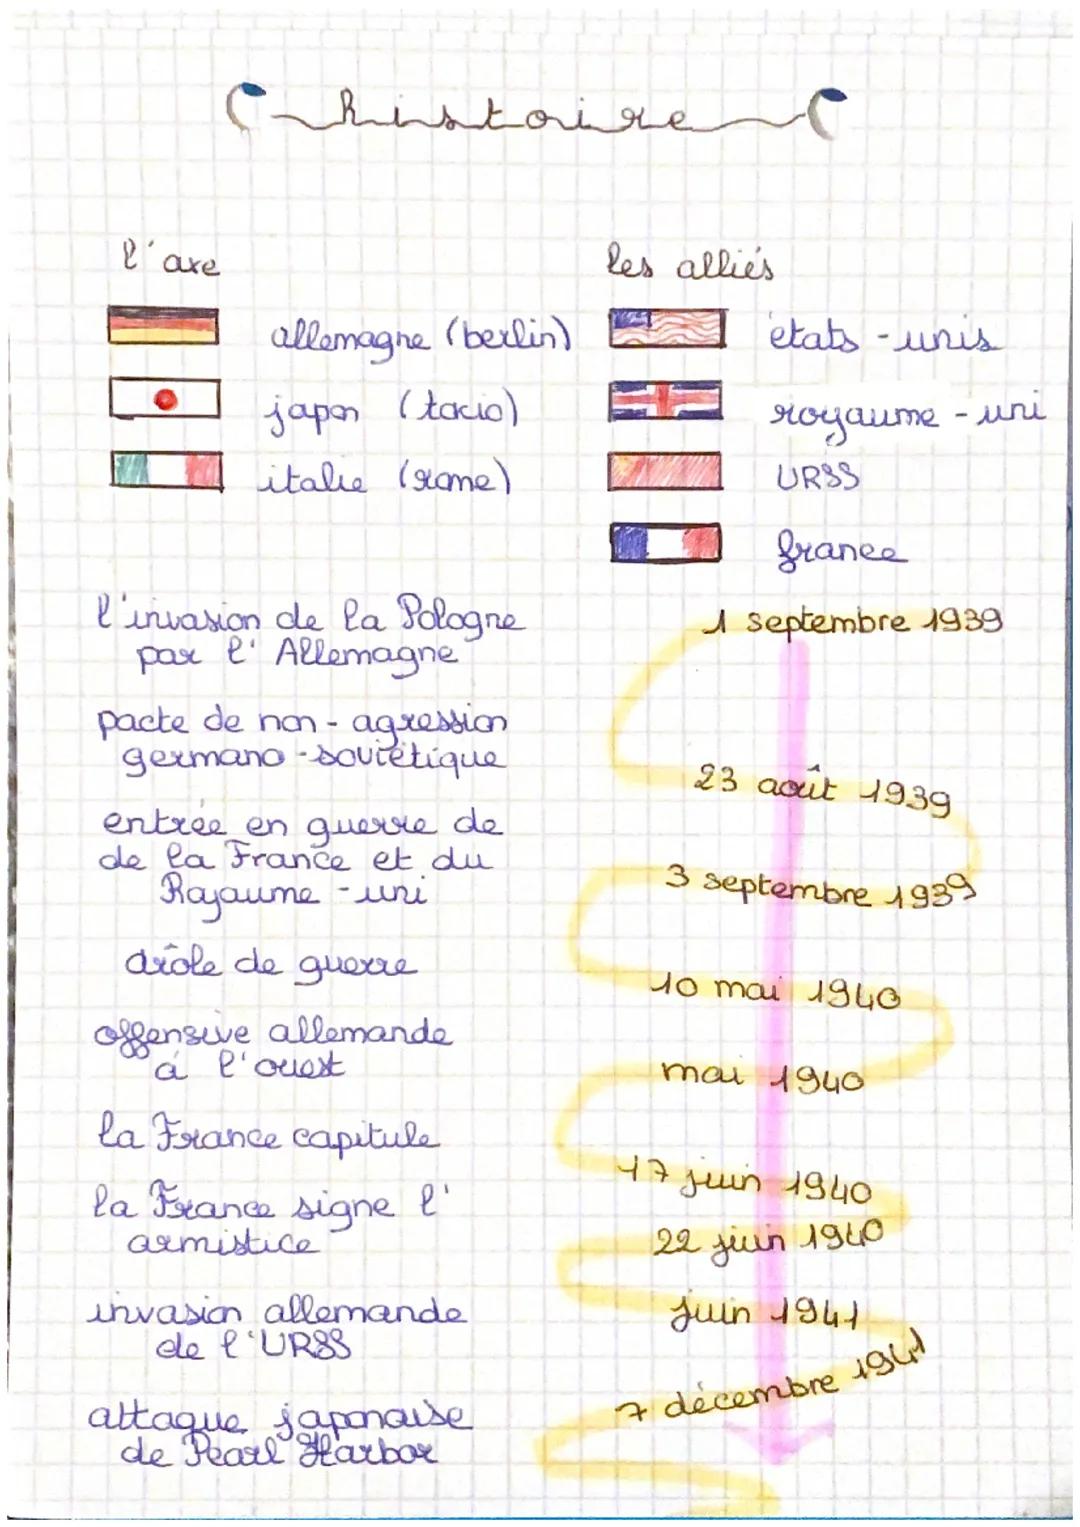 histoire
l'axe
les alliés
allemagne (berlin)
états-unis
japon (tocio)
royaume-uni
italie (rome)
URSS
france
l'invasion de la Pologne
par l'Allemagne
1 septembre 1939
pacte de non-agression
germano-soviétique
23 août 1939
entrée en guerre de
de la France et du
Royaume-uni
3 septembre 1939
drôle de guerre
10 mai 1940
offensive allemande
à l'ouest
mai 1940
la France capitule
17 juin 1940
la France signe l'
armistice
22 juin 1940
invasion allemande
de l'URSS
juin 1941
attaque japonaise
de Pearl Harbor
7 décembre 1941